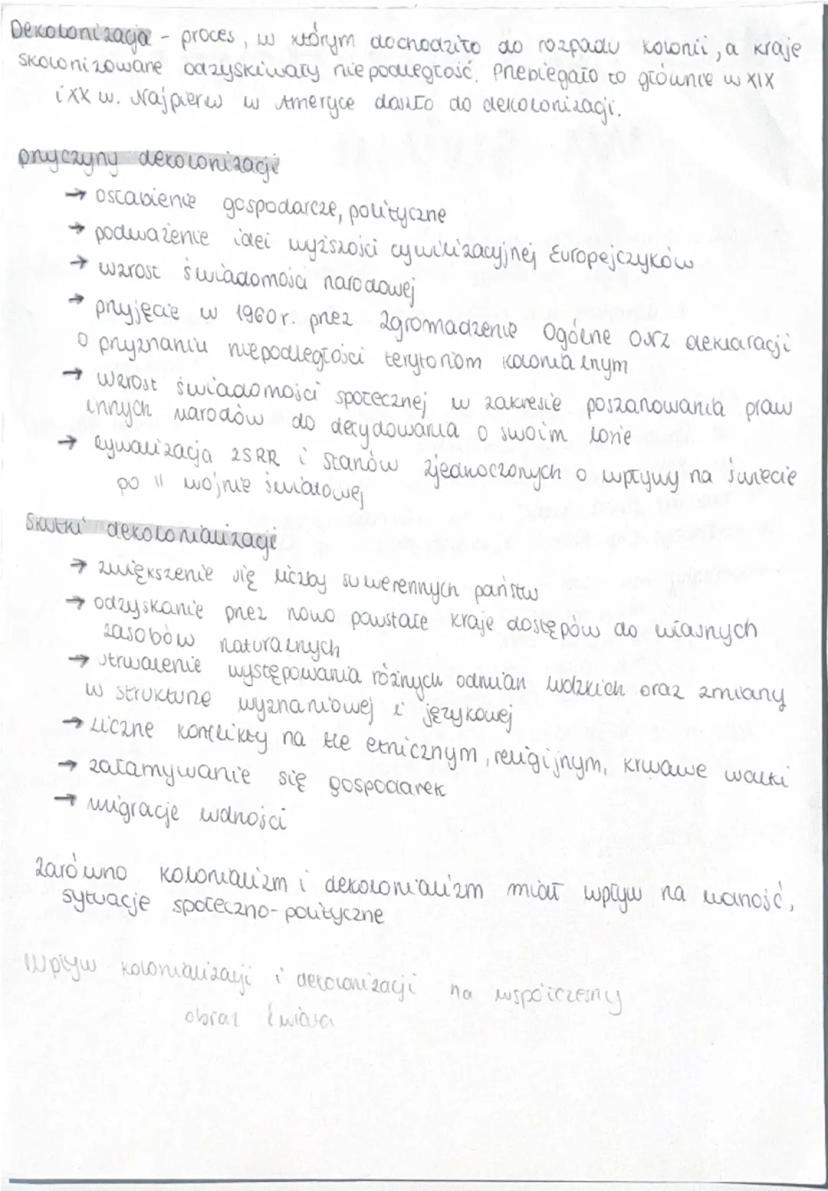 Dekolonizacja - proces, w którym dochodziło do rozpadu kolonii, a kraje
skolonizowane odzyskiwały niepodległość. Przebiegało to głównie w XIX
i XX w. Najpierw w Ameryce doszło do dekolonizacji.
przyczyny dekolonizacji
→ osłabienie gospodarcze, polityczne
→ podważenie idei wyższości cywilizacyjnej Europejczyków
→ wzrost świadomości narodowej
→ przyjęcie w 1960 r. przez Zgromadzenie Ogólne ONZ deklaracji
o przyznaniu niepodległości terytoriom kolonialnym
→ wzrost świadomości społecznej w zakresie poszanowania praw
innych narodów do decydowania o swoim losie
→ rywalizacja ZSRR i Stanów Zjednoczonych o wpływy na świecie
po II wojnie światowej
Skutki dekolonializacji
→ zwiększenie się liczby suwerennych państw
→ odzyskanie przez nowo powstałe kraje dostępów do własnych
zasobów naturalnych
→ utrwalenie występowania różnych odmian ludzkich oraz zmiany
w strukturze wyznaniowej i językowej
→ liczne konflikty na tle etnicznym, religijnym, krwawe walki
→ załamywanie się gospodarek
→ migracje ludności
Zarówno kolonializm i dekolonializm miał wpływ na ludność,
sytuacje społeczno-polityczne
Wpływ kolonializacji i dekolonizacji na współczesny
obraz świata